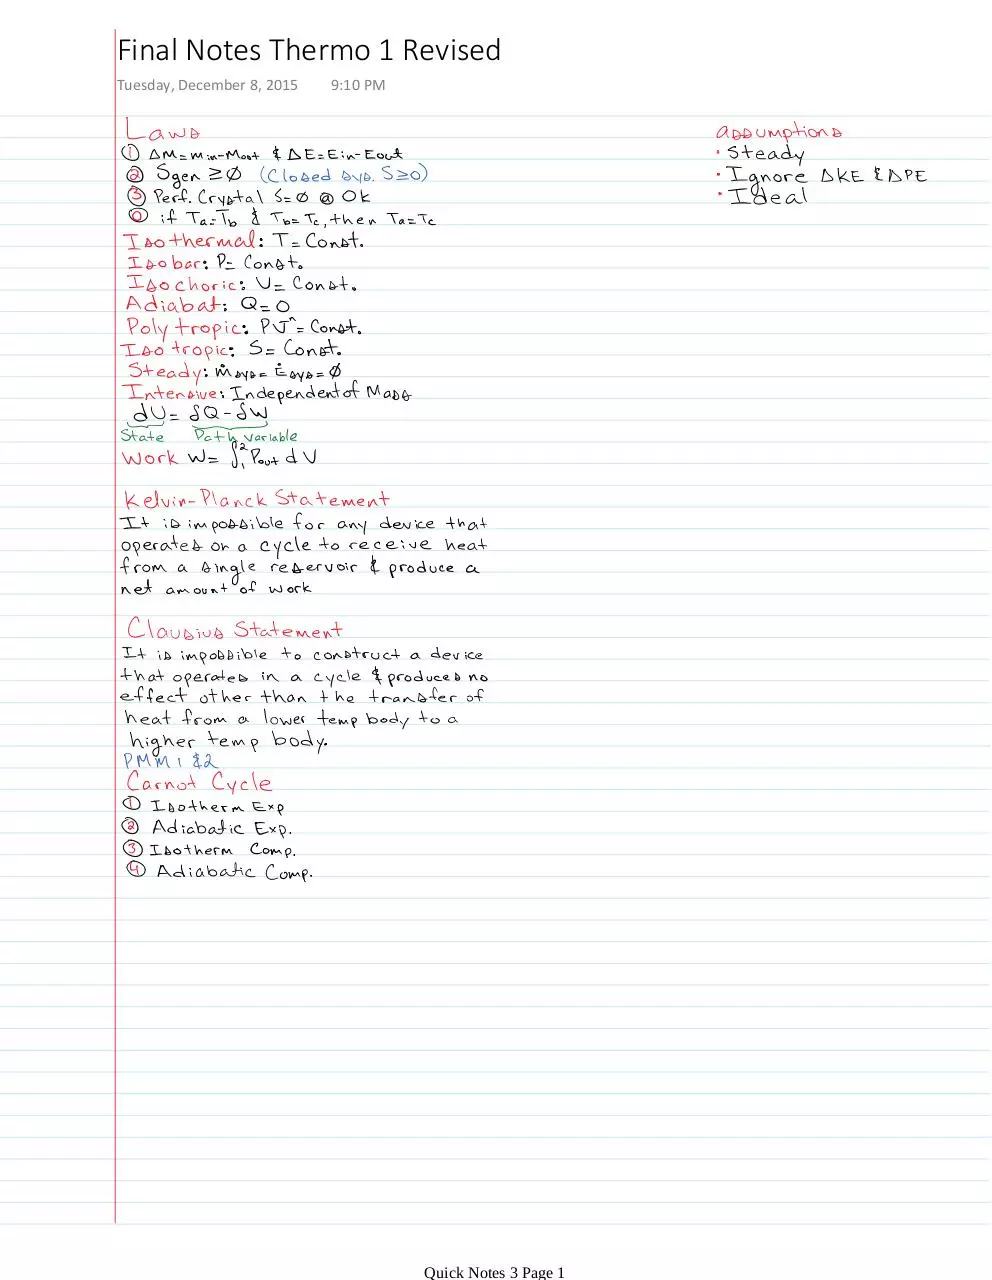 Final Notes Thermo 1 Revised
Tuesday, December 8, 2015 9:10 PM
Laws
① ΔM=min-Mout & ΔE=Ein-Eout
② Sgen ≥ Ø (Closed sys. S≥0)
③ Perf. Crystal S=Ø @ 0k
⓪ if Ta=Tb & Tb=Tc, then Ta=Tc
Isothermal: T= Const.
Isobar: P= Const.
Isochoric: V= Const.
Adiabat: Q=0
Polytropic: PV^n= Const.
Isotropic: S= Const.
Steady: ṁsys= Ėsys=Ø
Intensive: Independent of Mass
dU= δQ-δW
State Path variable
Work W= ∫₁² Pout dV
Kelvin-Planck Statement
It is impossible for any device that
operates on a cycle to receive heat
from a single reservoir & produce a
net amount of work
Clausius Statement
It is impossible to construct a device
that operates in a cycle & produces no
effect other than the transfer of
heat from a lower temp body to a
higher temp body.
PMM 1 & 2
Carnot Cycle
① Isotherm Exp
② Adiabatic Exp.
③ Isotherm Comp.
④ Adiabatic Comp.
assumptions
• Steady
• Ignore ΔKE & ΔPE
• Ideal
Quick Notes 3 Page 1